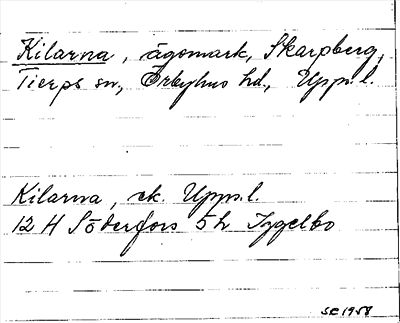 Kilarna, ägomark, Skarpberg,
Tierps sn, Örbyhus hd., Upps. l.
Kilarna, ek. Upps. l.
12 H Söderfors 5h Igelbo
SE 1958